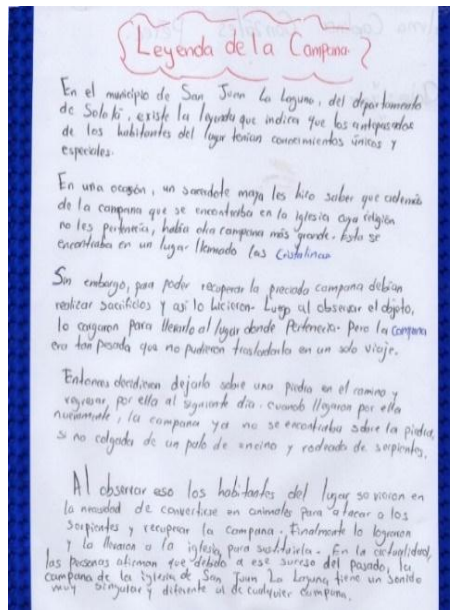 Leyenda de la Campana
En el municipio de San Juan La Laguna, del departamento
de Sololá, existe la leyenda que indica que los antepasados
de los habitantes del lugar tenian conocimientos únicos y
especiales.
En una ocasión, un sacerdote maya les hizo saber que además
de la campana que se encontraba en la iglesia cuya religión
no les pertenecia, había otra campana más grande. Esta se
encontraba en un lugar llamado las Cristalinas
Sin embargo, para poder recuperar la preciada campana debían
realizar sacrificios y así lo hicieron. Luego al observar el objeto,
lo cargaron para llevarlo al lugar donde Pertenecia. Pero la campana
era tan pesada que no pudieron trasladarla en un solo viaje.
Entonces decidieron dejarla sobre una piedra en el camino y
regresar, por ella al siguiente dia. cuando llegaron por ella
nuevamente, la campana ya no se encontraba sobre la piedra,
si no colgada de un palo de encino y rodeada de serpientes.
Al observar eso los habitantes del lugar se vieron en
la necesidad de convertirse en animales para atacar a las
Serpientes y recuperar la campana. Finalmente lo lograron
y la llevaron a la iglesia, para sustituirla. En la actualidad,
las personas afirman que debido a ese suceso del pasado, la
campana de la iglesia de San Juan La Laguna, tiene un sonido
muy singular y diferente al de cualquier campana.